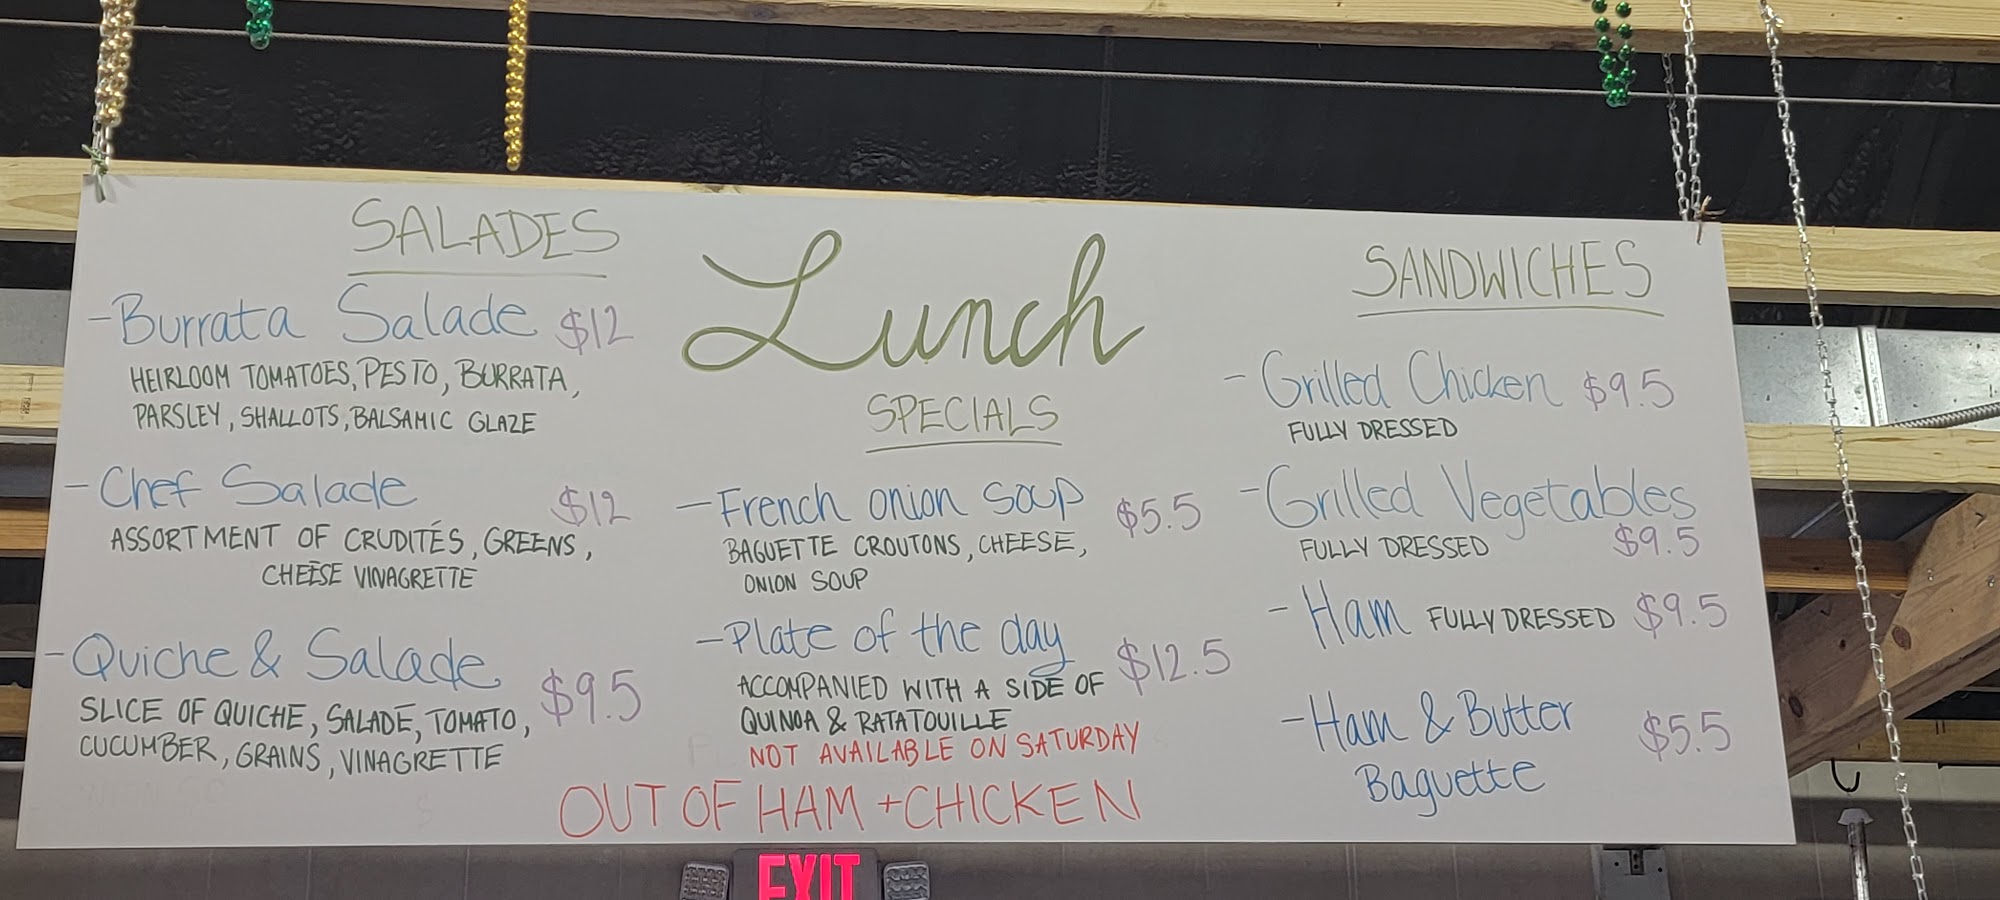 SALADES
-Burrata Salade $12
HEIRLOOM TOMATOES, PESTO, BURRATA,
PARSLEY, SHALLOTS, BALSAMIC GLAZE
-Chef Salade $12
ASSORTMENT OF CRUDITÉS, GREENS,
CHEESE VINAGRETTE
-Quiche & Salade $9.5
SLICE OF QUICHE, SALADE, TOMATO,
CUCUMBER, GRAINS, VINAGRETTE
Lunch
SPECIALS
-French onion soup $5.5
BAGUETTE CROUTONS, CHEESE,
ONION SOUP
-Plate of the day $12.5
ACCOMPANIED WITH A SIDE OF
QUINOA & RATATOUILLE
NOT AVAILABLE ON SATURDAY
OUT OF HAM + CHICKEN
SANDWICHES
-Grilled Chicken $9.5
FULLY DRESSED
-Grilled Vegetables
FULLY DRESSED $9.5
-Ham FULLY DRESSED $9.5
-Ham & Butter $5.5
Baguette
EXIT